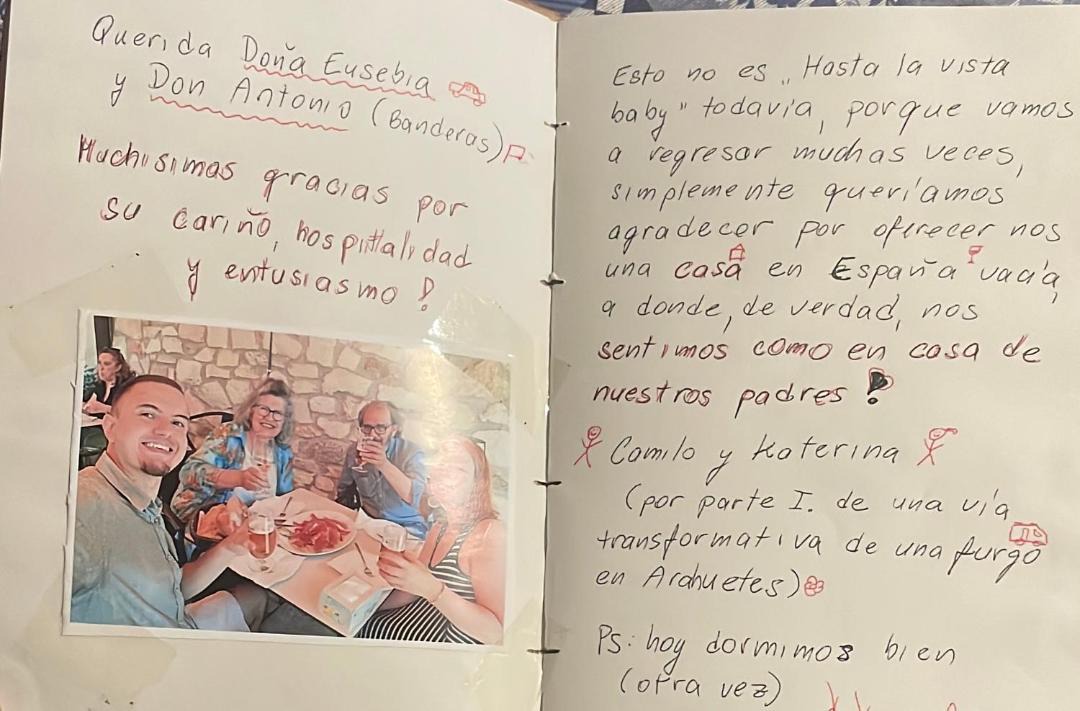 Querida Doña Eusebia
y Don Antonio (Banderas)
Muchisimas gracias por
su cariño, hospitalidad
y entusiasmo !
Esto no es „Hasta la vista
baby" todavía, porque vamos
a regresar muchas veces,
simplemente queríamos
agradecer por ofrecer nos
una casa en España vacía,
a donde, de verdad, nos
sentimos como en casa de
nuestros padres !
Camilo y Katerina
(por parte I. de una vía
transformativa de una furgo
en Arahuetes)
Ps: hoy dormimos bien
(otra vez)